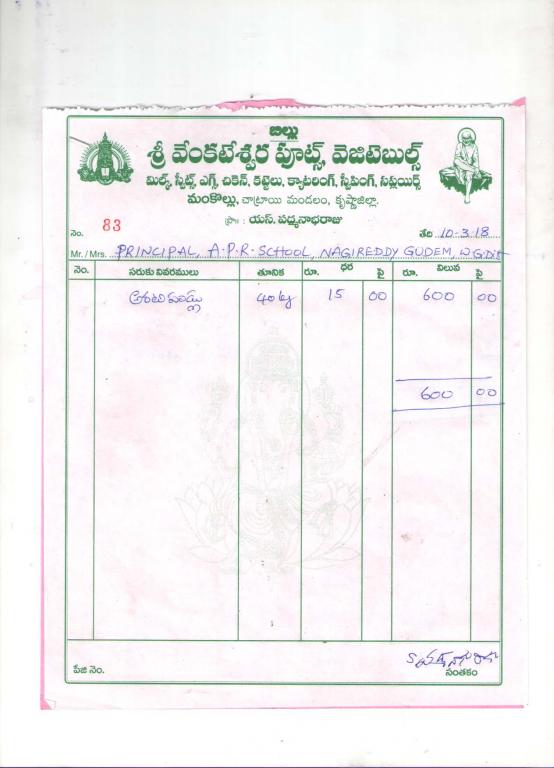 బిల్లు
శ్రీ వేంకటేశ్వర ఫూట్స్, వెజిటెబుల్స్
మిల్క్, స్వీట్స్, ఎగ్స్, చికెన్, కట్టెలు, క్యాటరింగ్, స్వీపింగ్, సప్లయర్స్
మంకొల్లు, చాట్రాయి మండలం, కృష్ణాజిల్లా.
ప్రొః : యస్. పద్మనాభరాజు
నెం. 83 తేది 10-3-18
Mr./Mrs. PRINCIPAL, A.P.R-SCHOOL, NAGIREDDY GUDEM, W.G.Dist
నెం. సరుకు వివరములు తూనిక రూ. ధర పై రూ. విలువ పై
40 kg 15 00 600 00
600 00
పేజి నెం. సంతకం